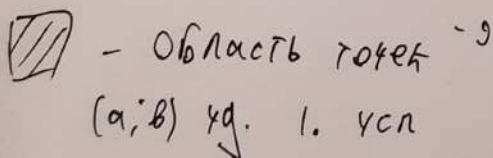 - Область точек -9
(a;b) уд. 1. усл